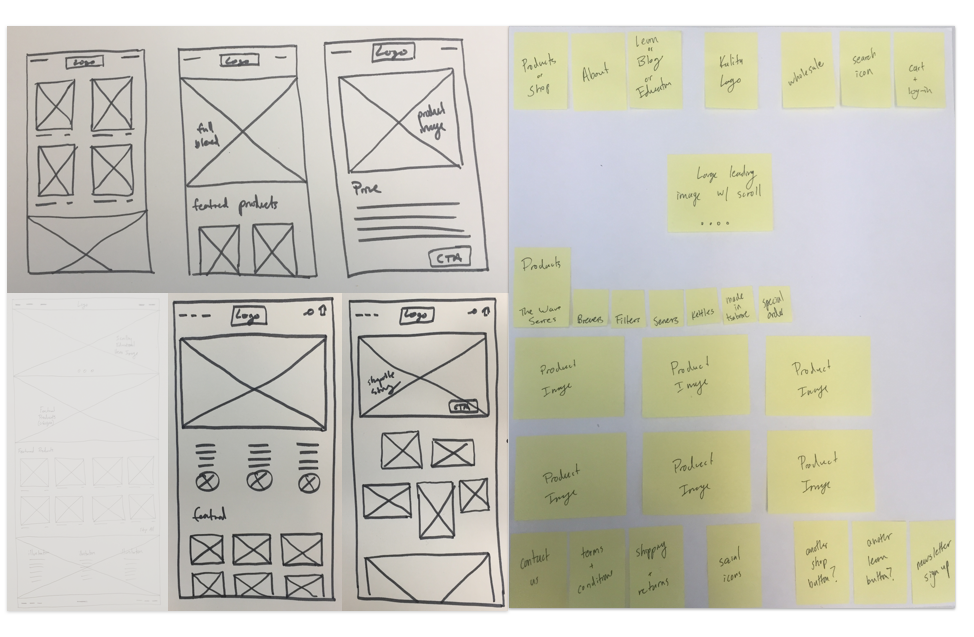 Logo
Logo
full
bleed
featured products
Logo
product
image
Price
CTA
Logo
featured
Logo
shopable
story
CTA
Products
or
Shop
About
Learn
or
Blog
or
Education
Kalita
Logo
wholesale
search
icon
cart
+
log-in
Large leading
image w/ scroll
Products
The Wave
Series
Brewers
Filters
Servers
Kettles
made
in
tsubame
special
order
Product
Image
Product
Image
Product
Image
Product
Image
Product
Image
Product
Image
contact
us
terms
+
conditions
shopping
+
returns
social
icons
another
shop
button?
another
learn
button?
newsletter
sign up